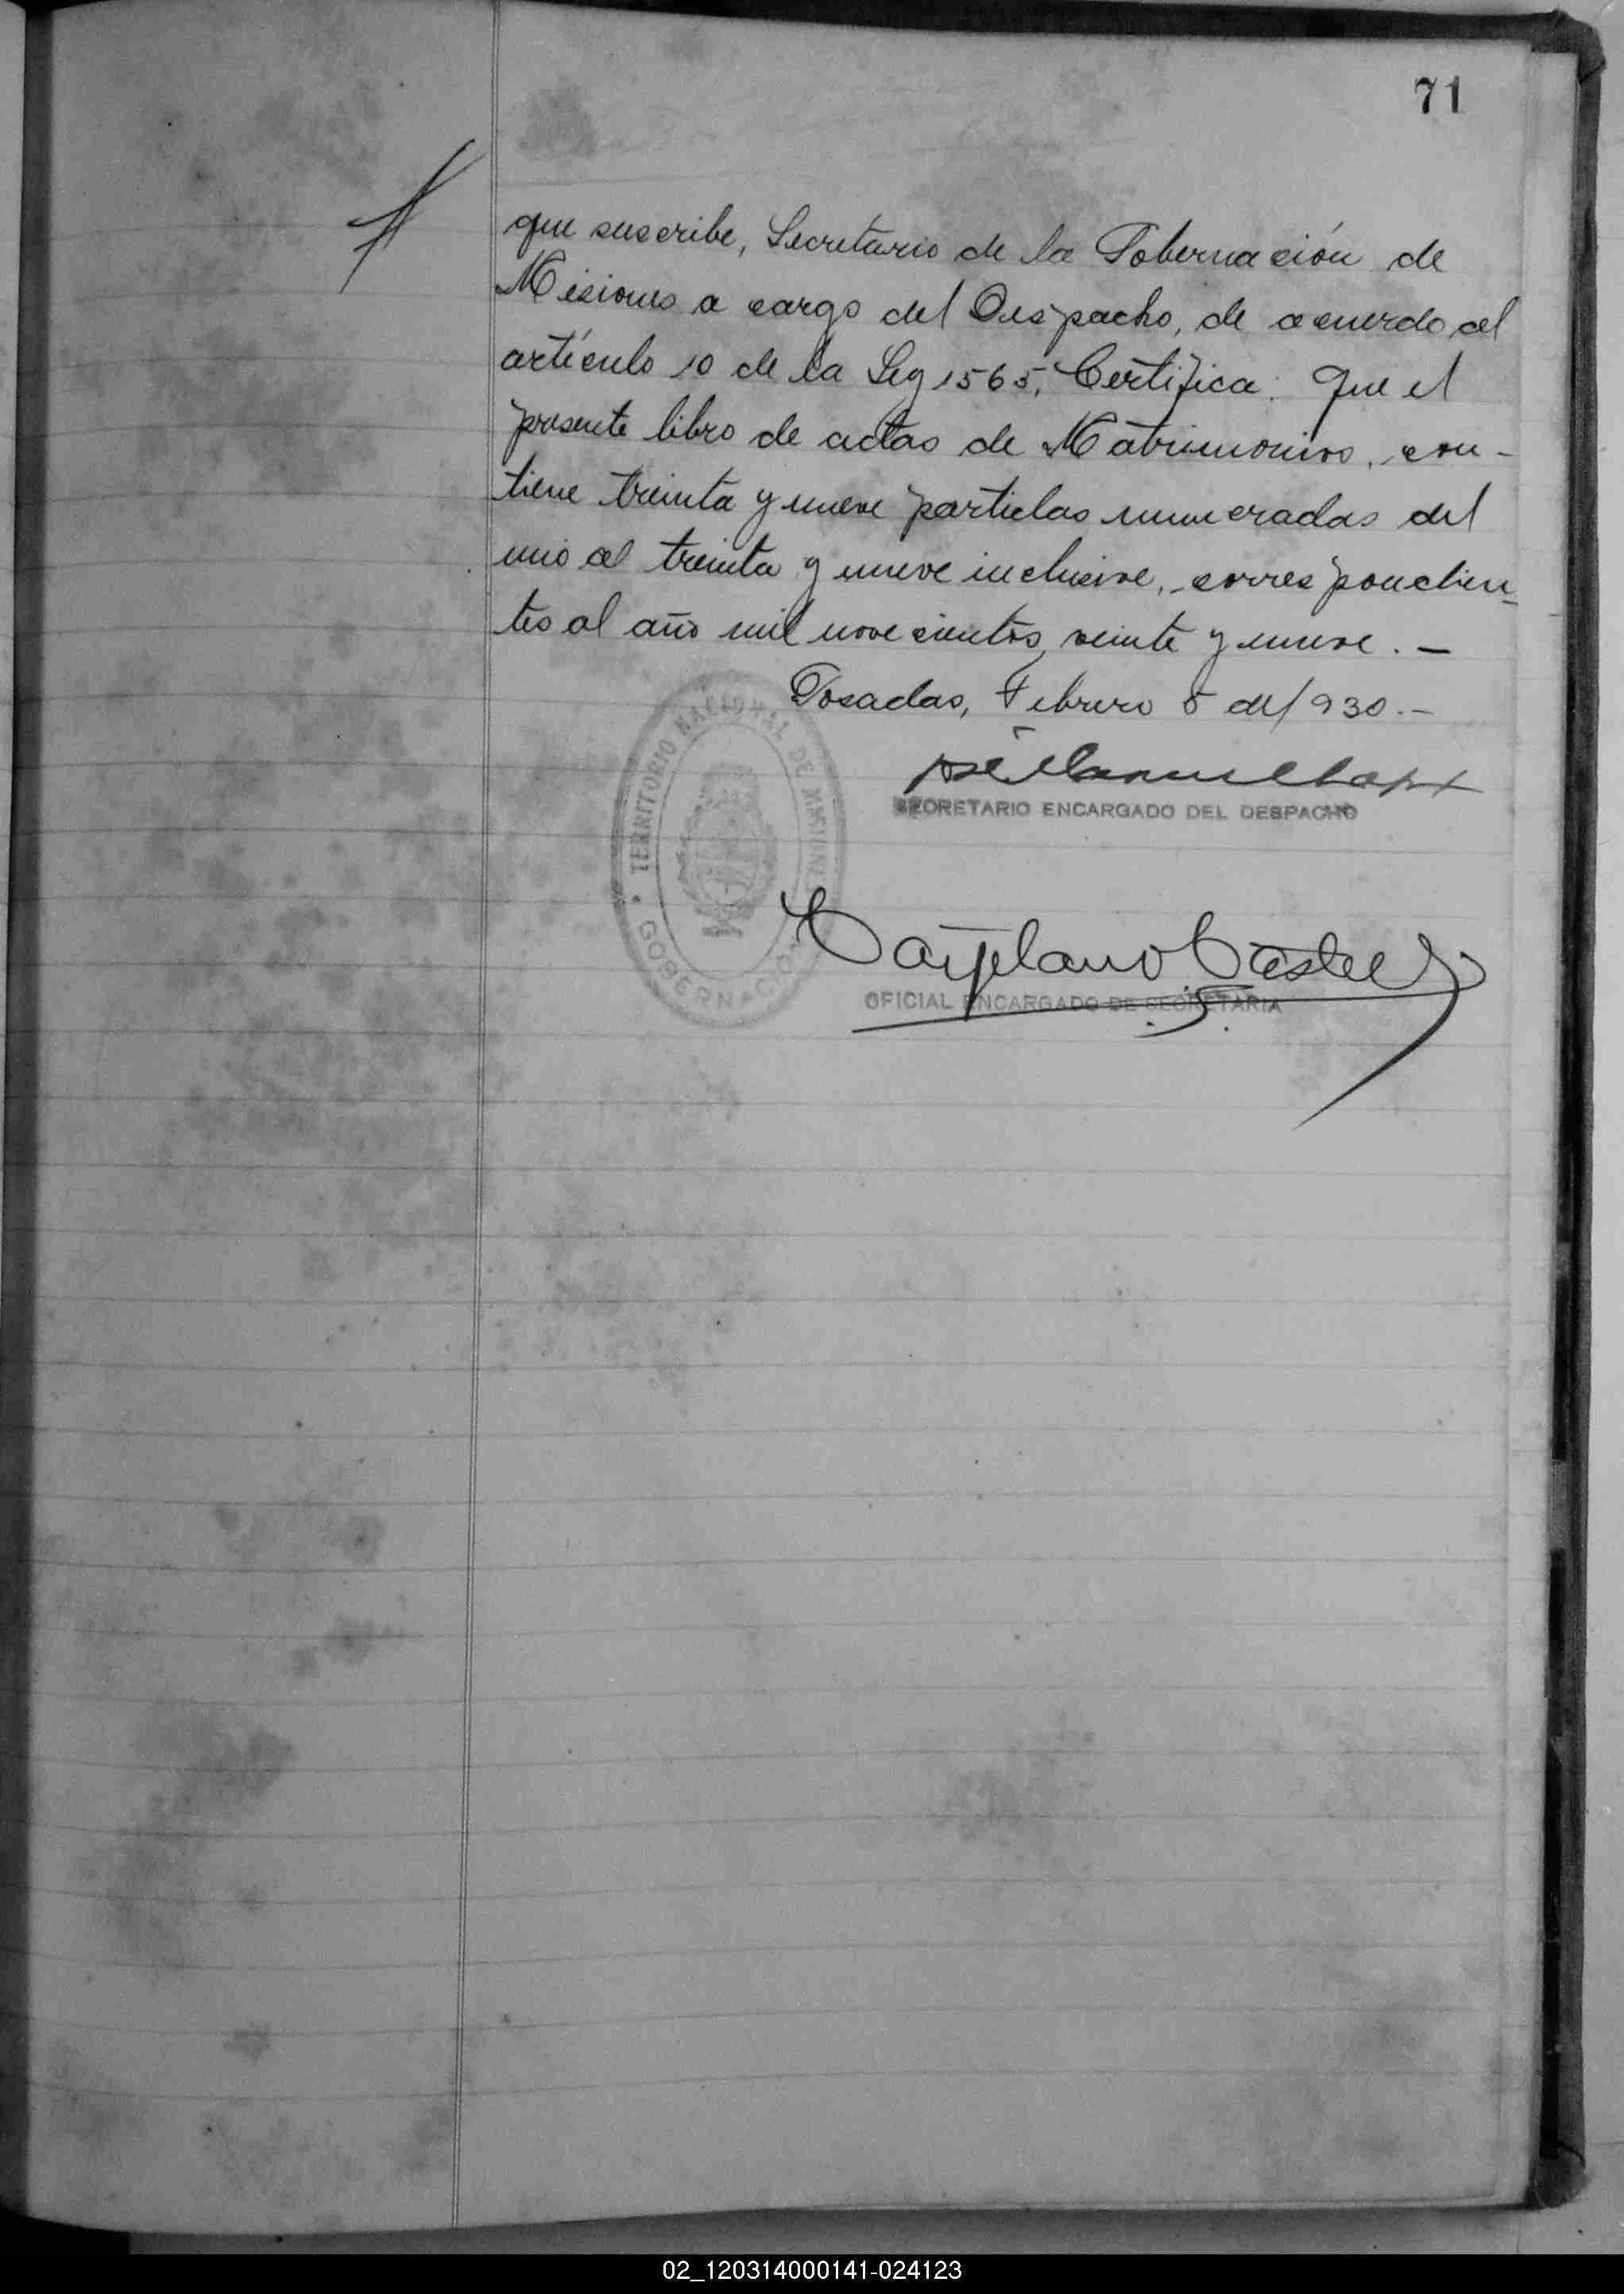 71
que suscribe, Secretario de la Gobernación de
Misiones a cargo del Despacho, de acuerdo al
artículo 10 de la Ley 1565, Certifica: Que el
presente libro de actas de Matrimonios, con-
tiene treinta y nueve partidas numeradas del
uno al treinta y nueve inclusive, correspondien-
tes al año mil novecientos veinte y nueve. —
Posadas, Febrero 5 de 1930.—
SECRETARIO ENCARGADO DEL DESPACHO
TERRITORIO NACIONAL DE MISIONES
GOBERNACION
OFICIAL ENCARGADO DE SECRETARIA
02_120314000141-024123